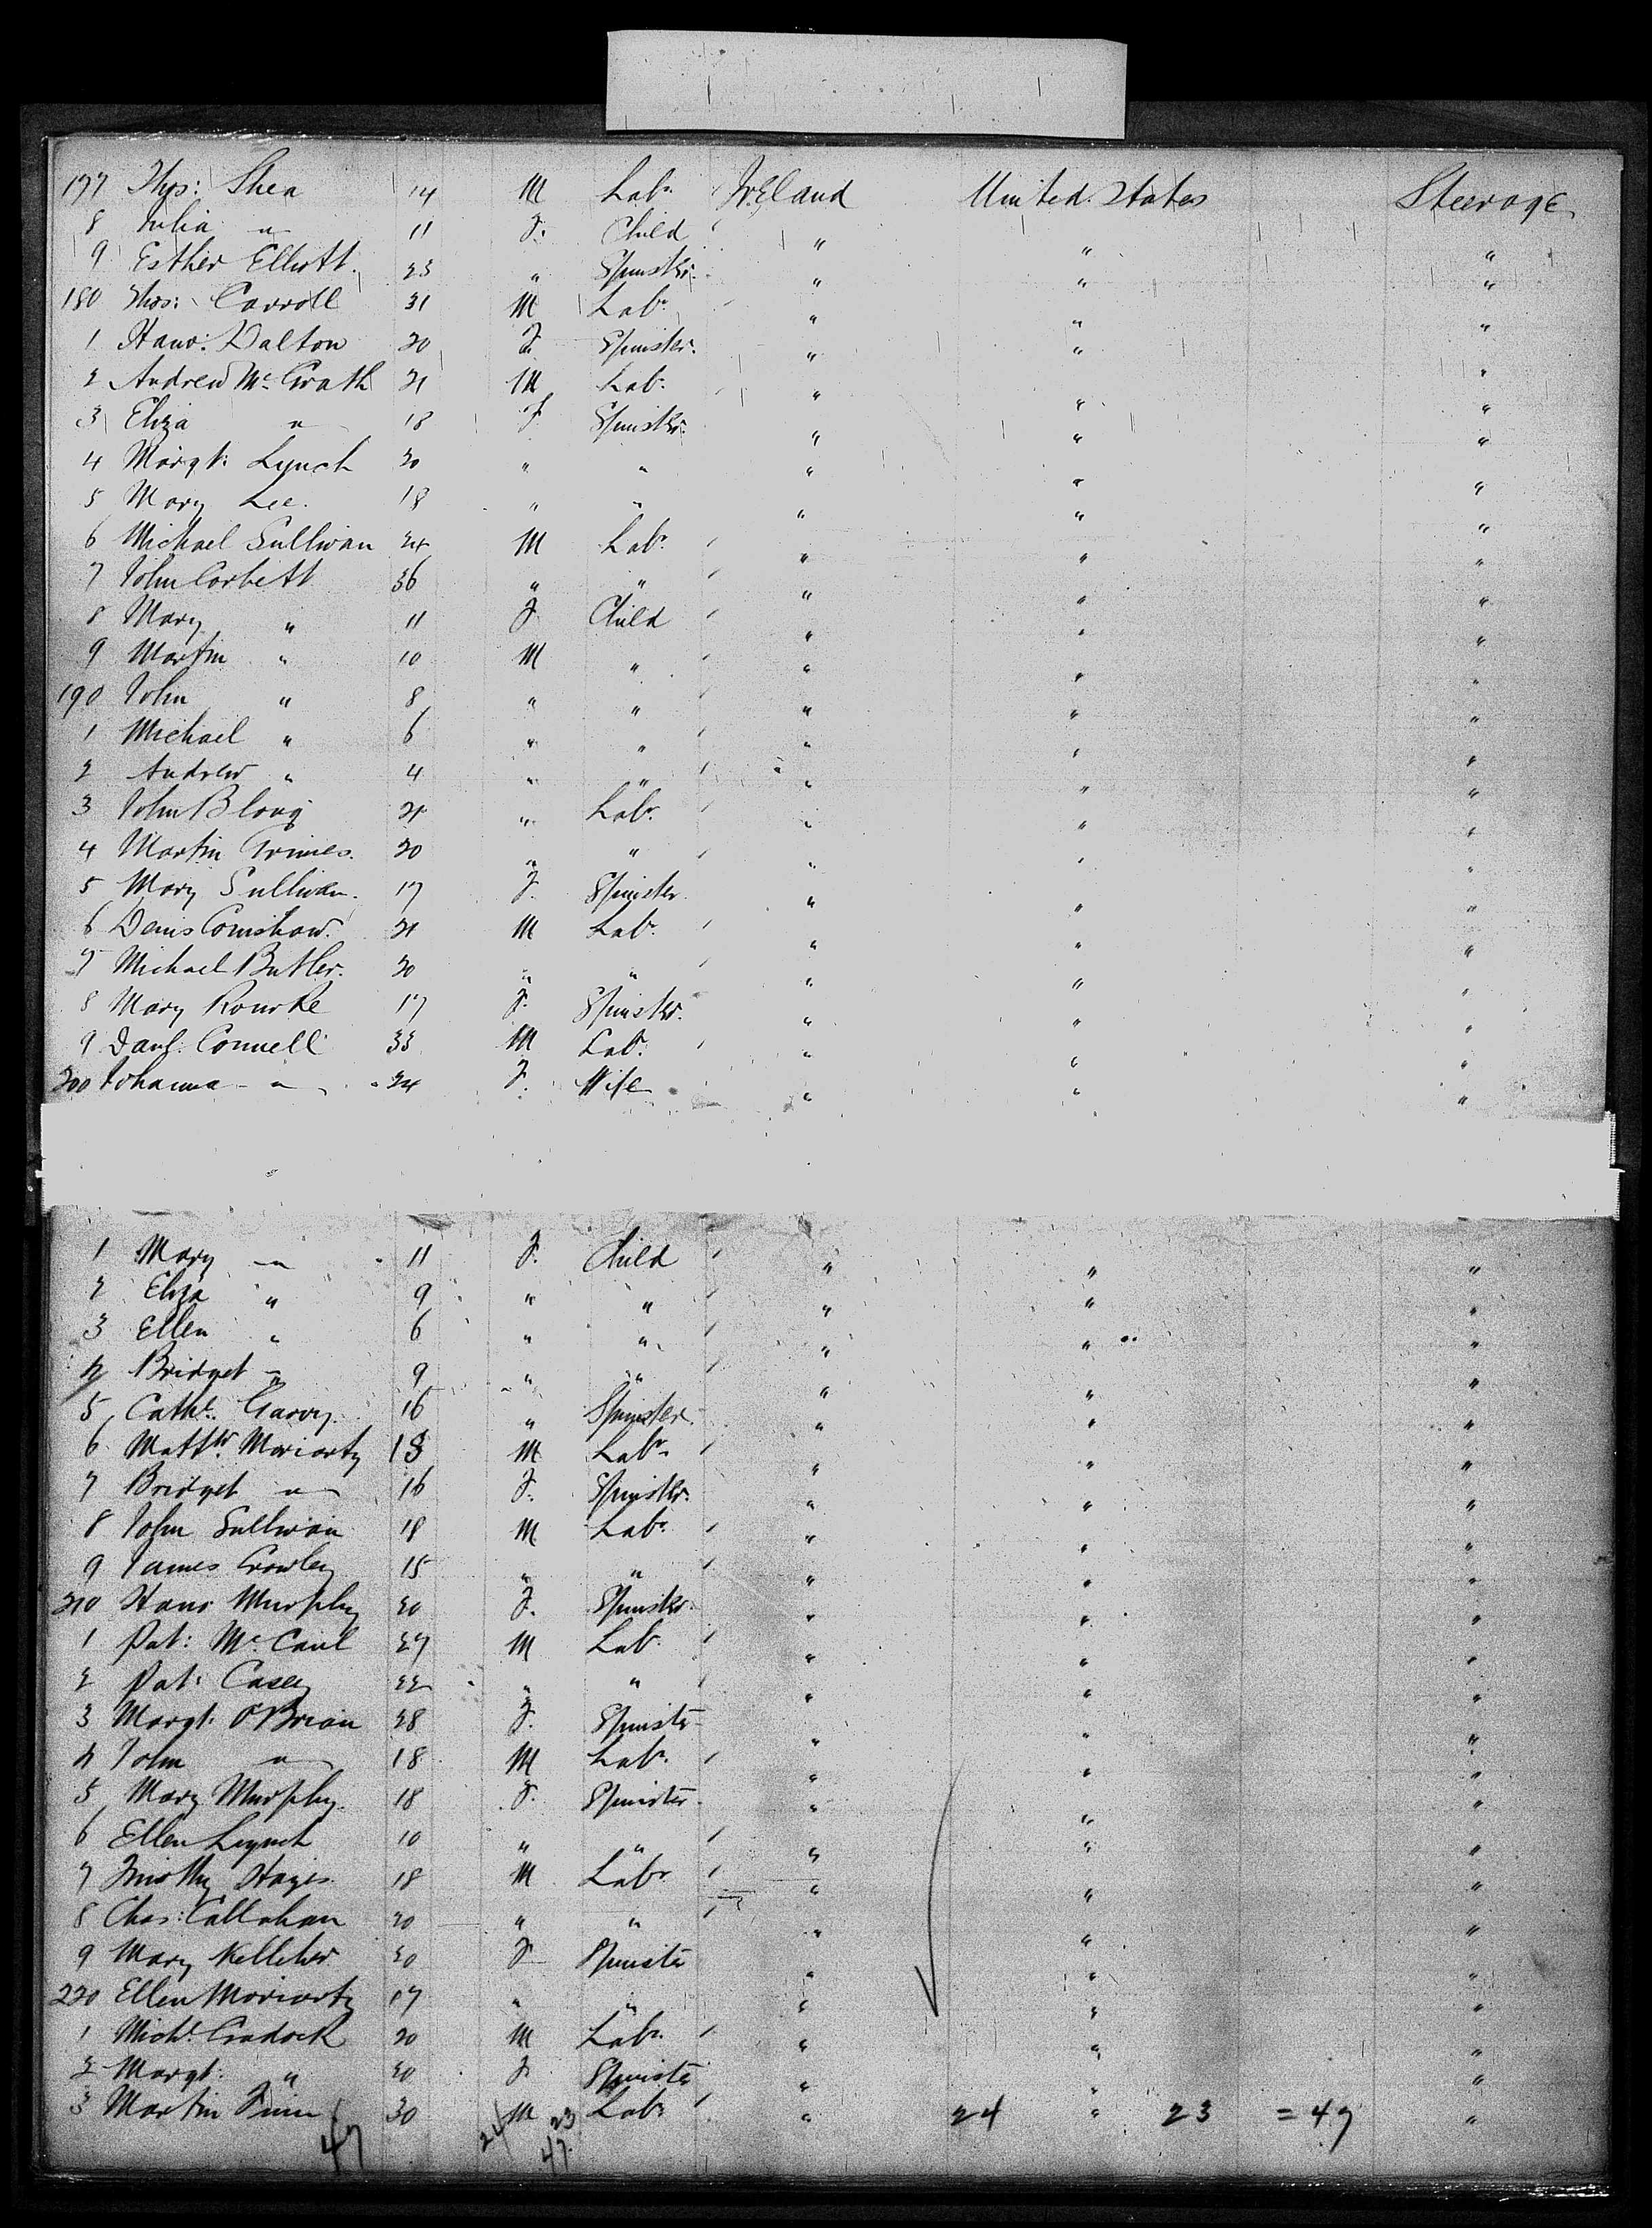 177 Thos: Shea 14 M Labr. Ireland United States Steerage
8 Julia " 11 F. Child " " "
9 Esther Elliott. 23 " Spinster. " " "
180 Thos: Carroll 21 M Labr. " " "
1 Hano: Dalton 20 F Spinster. " " "
2 Andrew McGrath 21 M Labr. " " "
3 Eliza " 18 F Spinster. " " "
4 Margt: Lynch 20 " " " " "
5 Mary Lee. 18 " " " " "
6 Michael Sullivan 24 M Labr. " " "
7 John Corbett 36 " " " " "
8 Mary " 11 F Child " " "
9 Martin " 10 M " " " "
190 John " 8 " " " " "
1 Michael " 6 " " " " "
2 Andrew " 4 " " " " "
3 John 21 " Labr. " " "
4 Martin Grimes. 20 " " " " "
5 Mary Sullivan. 17 F. Spinster " " "
6 Denis 21 M Labr. " " "
7 Michael Butler. 20 " " " " "
8 Mary Rourke 17 F. Spinster. " " "
9 Danl. Connell 33 M Labr. " " "
200 Johanna " 34 F. Wife " " "
1 Mary " 11 F. Child " " "
2 Eliza " 9 " " " " "
3 Ellen " 6 " " " " "
4 Bridget " 9 " " " " "
5 Cathe. Garvy. 16 " Spinster. " " "
6 Mattw. Moriarty 18 M Labr. " " "
7 Bridget " 16 F. Spinster. " " "
8 John Sullivan 18 M Labr. " " "
9 James Crowley 15 " " " " "
210 Hano Murphy 20 F. Spinster. " " "
1 Pat: McCaul 27 M Labr. " " "
2 Pat: Casey 22 " " " " "
3 Margt. O'Brian 28 F. Spinster " " "
4 John " 18 M Labr. " " "
5 Mary Murphy. 18 F. Spinster " " "
6 Ellen Lynch 10 " " " " "
7 Timothy Hayes. 18 M Labr " " "
8 Chas: Callahan 20 " " " " "
9 Mary Kelleher 20 F Spinster " " "
220 Ellen Moriarty 17 " " " " "
1 Michl. Cradock 20 M Labr. " " "
2 Margt: " 20 F Spinster " " "
3 Martin Finn 30 M Labr " 24 " 23 = 47 "
47 24 23
47.